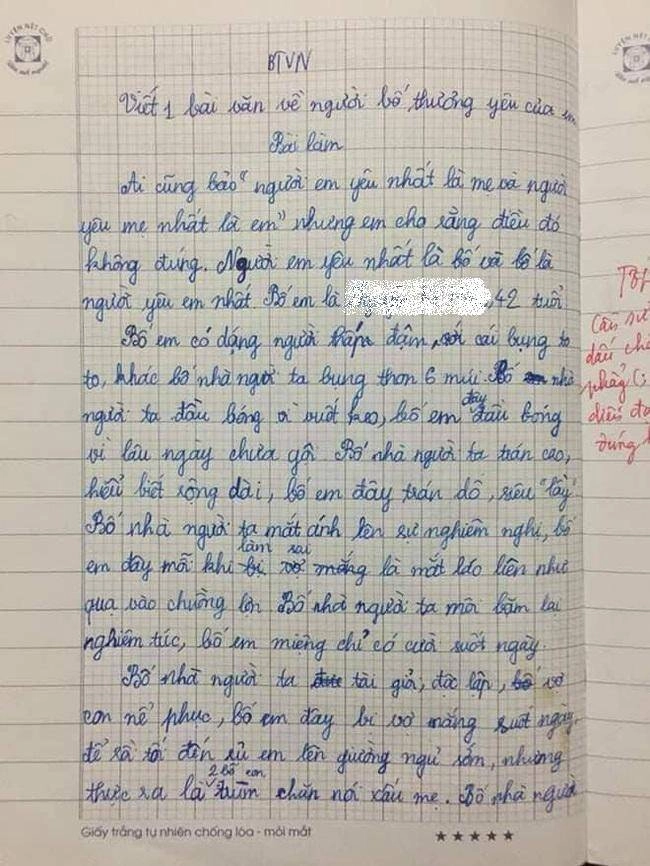 LUYỆN NÉT CHỮ
BTVN
Viết 1 bài văn về người bố thương yêu của em
Bài làm
Ai cũng bảo "người em yêu nhất là mẹ và người
yêu mẹ nhất là em" nhưng em cho rằng điều đó
không đúng. Người em yêu nhất là bố và bố là
người yêu em nhất. Bố em là , 42 tuổi
Bố em có dáng người thấp đậm, với cái bụng to
to, khác bố nhà người ta bụng thon 6 múi. Bố nhà
người ta đầu bóng vì vuốt keo, bố em đây đầu bóng
vì lâu ngày chưa gội. Bố nhà người ta trán cao,
hiểu biết rộng dài, bố em đây trán dô, siêu "lầy".
Bố nhà người ta mắt ánh lên sự nghiêm nghị, bố
em đây mỗi khi làm sai là mắt láo liên như
qua vào chuồng lợn Bố nhà người ta môi bặm lại
nghiêm túc, bố em miệng chỉ có cười suốt ngày.
Bố nhà người ta tài giỏi, độc lập, vợ
con nể phục, bố em đây bị vợ mắng suốt ngày
để rồi tối đến rủ em lên giường ngủ sớm, nhưng
thực ra là 2 bố con trùm chăn nói xấu mẹ. Bố nhà người
Cần sử
dấu ch
phẩy (;
diễn đạ
đúng
Giấy trắng tự nhiên chống lóa - mỏi mắt
★★★★★